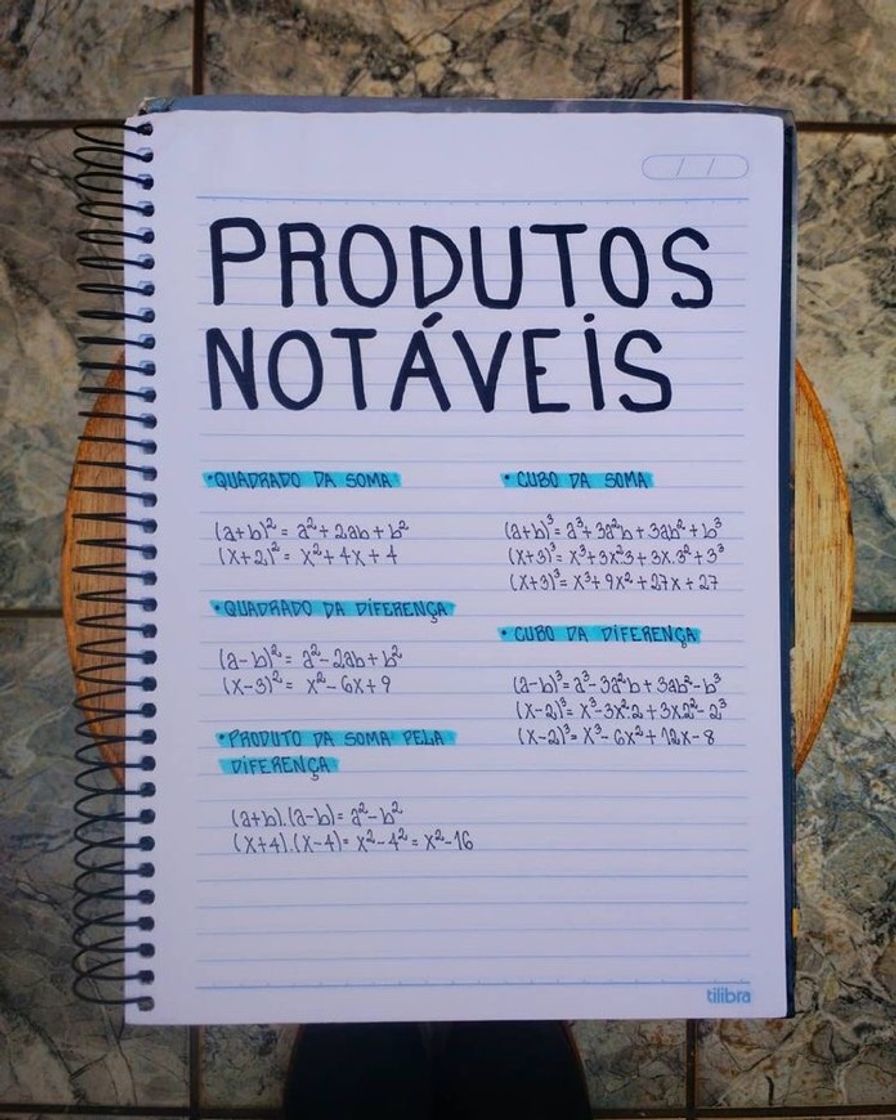 PRODUTOS
NOTÁVEIS
•QUADRADO DA SOMA
(a+b)² = a² + 2ab + b²
(x+2)² = x² + 4x + 4
•QUADRADO DA DIFERENÇA
(a-b)² = a² - 2ab + b²
(x-3)² = x² - 6x + 9
•PRODUTO DA SOMA PELA
DIFERENÇA
(a+b).(a-b) = a² - b²
(x+4).(x-4) = x² - 4² = x² - 16
• CUBO DA SOMA
(a+b)³ = a³ + 3a²b + 3ab² + b³
(x+3)³ = x³ + 3x²3 + 3x.3² + 3³
(x+3)³ = x³ + 9x² + 27x + 27
• CUBO DA DIFERENÇA
(a-b)³ = a³ - 3a²b + 3ab² - b³
(x-2)³ = x³ - 3x².2 + 3x2² - 2³
(x-2)³ = x³ - 6x² + 12x - 8
tilibra